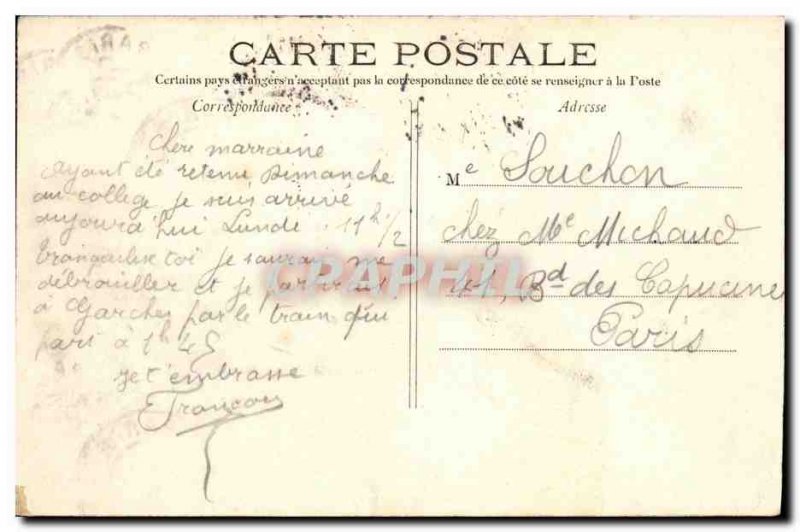 CARTE POSTALE
Certains pays étrangers n'acceptant pas la correspondance de ce côté se renseigner à la Poste
Correspondance
Adresse
Chère marraine
Ayant été retenu Dimanche
au collège je suis arrivé
aujourd'hui Lundi 11h 1/2
tranquilise toi je saurai me
débrouiller et je partirai
à Garches par le train qui
part à 1h 45
je t'embrasse
Me Souchon
chez Me Michaud
41, Bd des Capucines
Paris
CPAPHIL